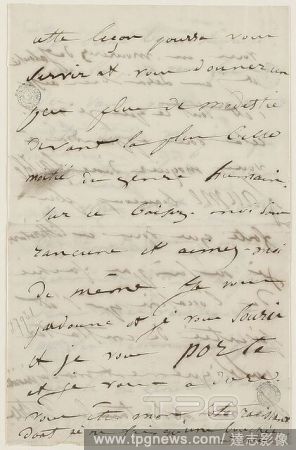 cette leçon pourra vous
servir et vous donner un
peu plus de modestie
devant la plus belle
moitié du genre humain.
sur ce baisez-moi sans
rancune et aimez-moi
de même. Je vous
pardonne et je vous souris
et je vous porte
et je vous adore
vous êtes mon
dont je ne
TPG
www.tpgnews.com / 達志影像